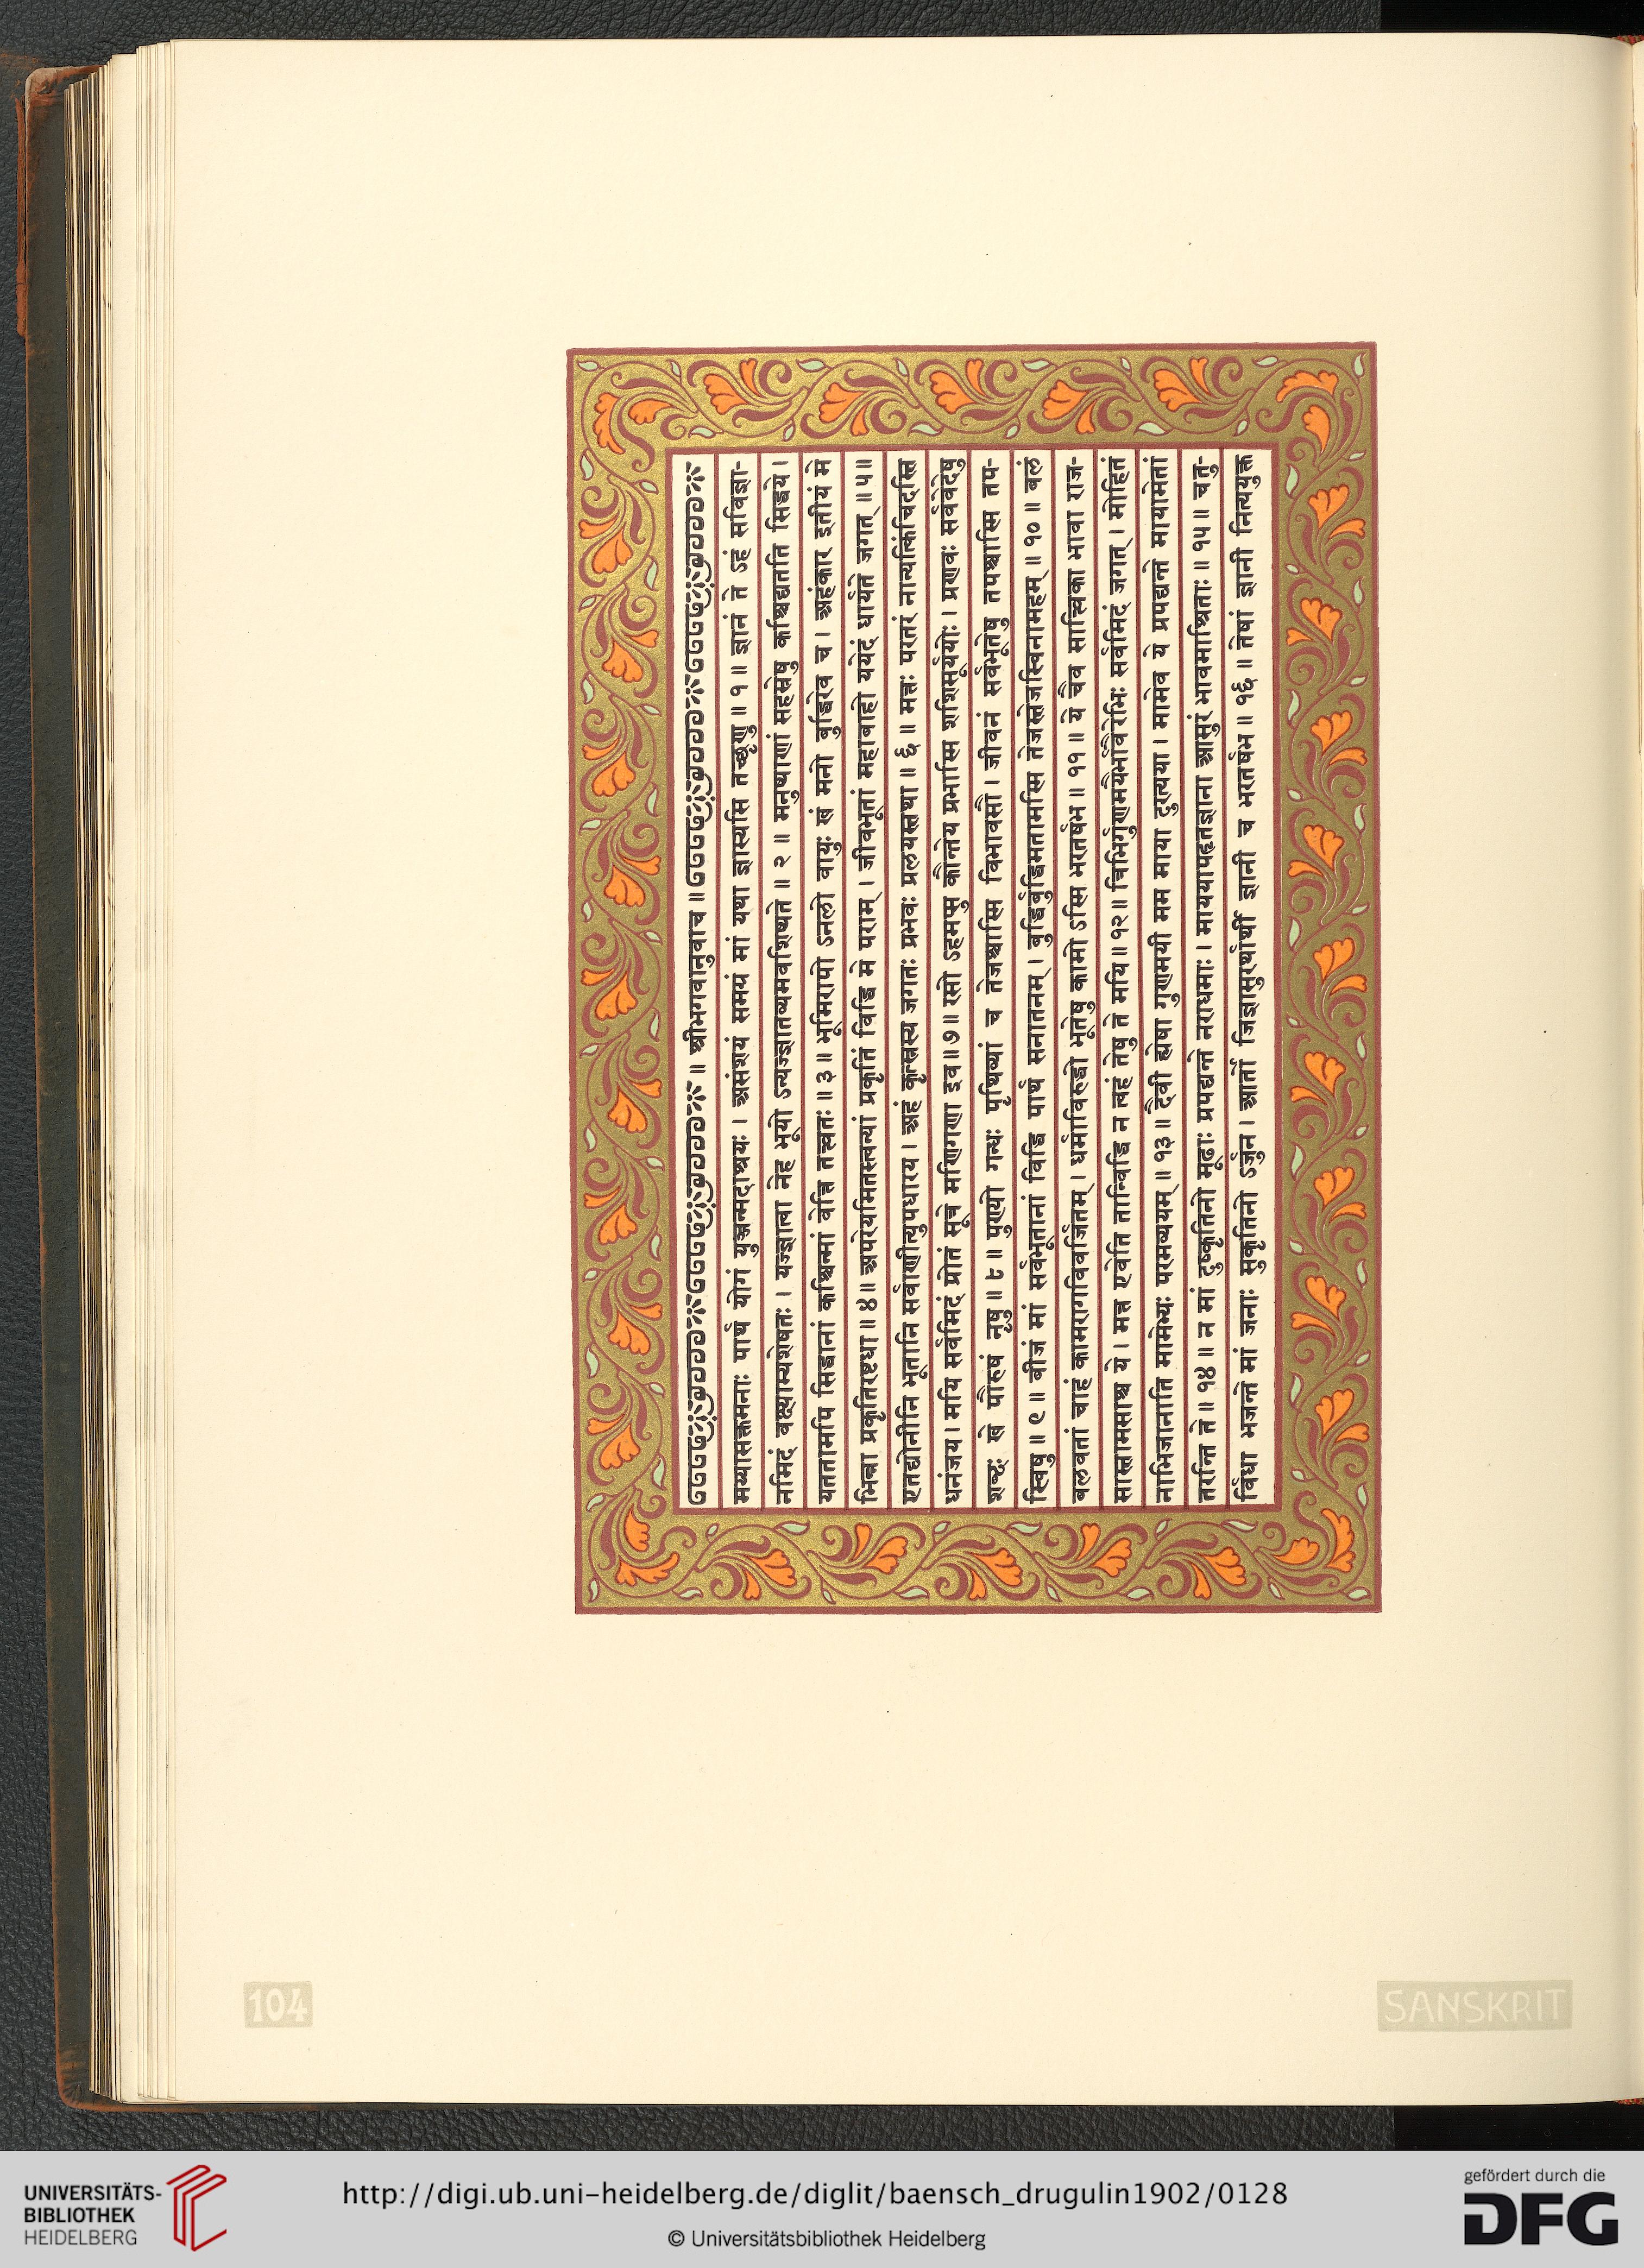 ॥ श्रीभगवानुवाच ॥
मय्यासक्तमनाः पार्थ योगं युञ्जन्मदाश्रयः । असंशयं समग्रं मां यथा ज्ञास्यसि तच्छृणु ॥ १ ॥ ज्ञानं ते ऽहं सविज्ञा-
नमिदं वक्ष्याम्यशेषतः । यज्ज्ञात्वा नेह भूयो ऽन्यज्ज्ञातव्यमवशिष्यते ॥ २ ॥ मनुष्याणां सहस्रेषु कश्चिद्यतति सिद्धये ।
यततामपि सिद्धानां कश्चिन्मां वेत्ति तत्त्वतः ॥ ३ ॥ भूमिरापो ऽनलो वायुः खं मनो बुद्धिरेव च । अहंकार इतीयं मे
भिन्ना प्रकृतिरष्टधा ॥ ४ ॥ अपरेयमितस्त्वन्यां प्रकृतिं विद्धि मे पराम् । जीवभूतां महाबाहो ययेदं धार्यते जगत् ॥ ५ ॥
एतद्योनीनि भूतानि सर्वाणीत्युपधारय । अहं कृत्स्नस्य जगतः प्रभवः प्रलयस्तथा ॥ ६ ॥ मत्तः परतरं नान्यत्किंचिदस्ति
धनंजय । मयि सर्वमिदं प्रोतं सूत्रे मणिगणा इव ॥ ७ ॥ रसो ऽहमप्सु कौन्तेय प्रभास्मि शशिसूर्ययोः । प्रणवः सर्ववेदेषु
शब्दः खे पौरुषं नृषु ॥ ८ ॥ पुण्यो गन्धः पृथिव्यां च तेजश्चास्मि विभावसौ । जीवनं सर्वभूतेषु तपश्चास्मि तप-
स्विषु ॥ ९ ॥ बीजं मां सर्वभूतानां विद्धि पार्थ सनातनम् । बुद्धिर्बुद्धिमतामस्मि तेजस्तेजस्विनामहम् ॥ १० ॥ बलं
बलवतां चाहं कामरागविवर्जितम् । धर्माविरुद्धो भूतेषु कामो ऽस्मि भरतर्षभ ॥ ११ ॥ ये चैव सात्त्विका भावा राज-
सास्तामसाश्च ये । मत्त एवेति तान्विद्धि न त्वहं तेषु ते मयि ॥ १२ ॥ त्रिभिर्गुणमयैर्भावैरेभिः सर्वमिदं जगत् । मोहितं
नाभिजानाति मामेभ्यः परमव्ययम् ॥ १३ ॥ दैवी ह्येषा गुणमयी मम माया दुरत्यया । मामेव ये प्रपद्यन्ते मायामेतां
तरन्ति ते ॥ १४ ॥ न मां दुष्कृतिनो मूढाः प्रपद्यन्ते नराधमाः । माययापहृतज्ञाना आसुरं भावमाश्रिताः ॥ १५ ॥ चतु-
र्विधा भजन्ते मां जनाः सुकृतिनो ऽर्जुन । आर्तो जिज्ञासुरर्थार्थी ज्ञानी च भरतर्षभ ॥ १६ ॥ तेषां ज्ञानी नित्ययुक्त
104
SANSKRIT
UNIVERSITÄTS-
BIBLIOTHEK
HEIDELBERG
http://digi.ub.uni-heidelberg.de/diglit/baensch_drugulin1902/0128
© Universitätsbibliothek Heidelberg
gefördert durch die
DFG